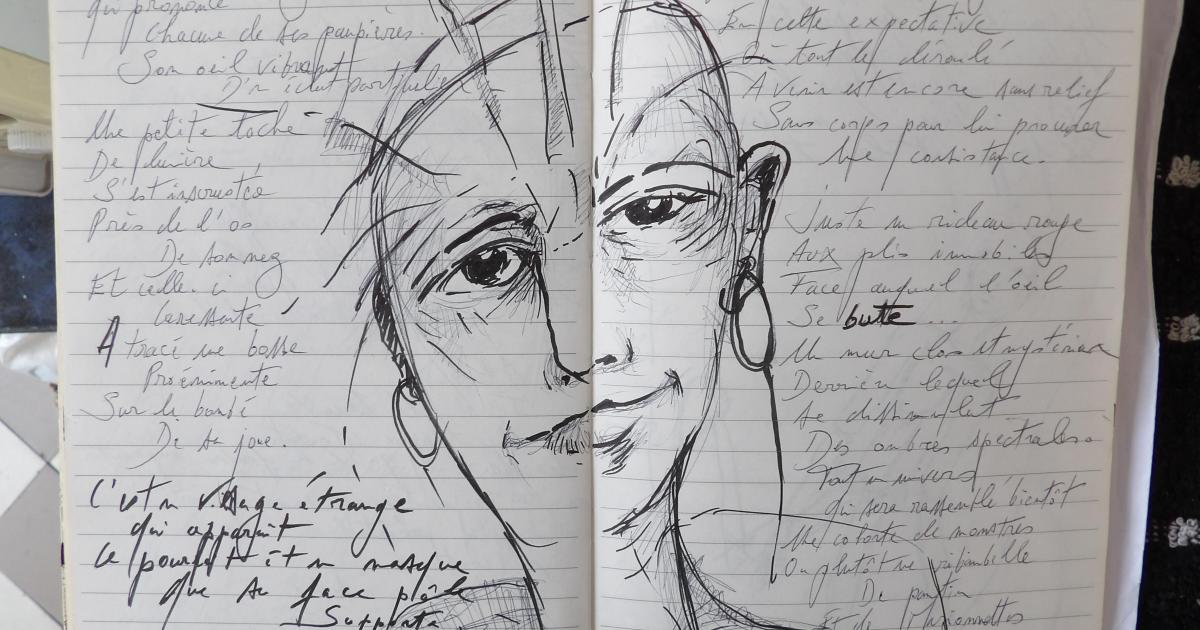 qui prononce
Chacune de ses paupières.
Son oeil vibrant
D'un éclat particulier
Une petite tache
De lumière
S'est incrustée
Près de l'os
De son nez
Et celle-ci
Caressante
A tracé une bosse
Proéminente
Sur le bombé
De sa joue.
C'est un visage étrange
qui apparaît
Ce pourrait être un masque
que sa face pâle
Supporte
En cette expectative
Où tout le déroulé
À venir est encore sans relief
Sans corps pour lui procurer
Une consistance.
Juste un rideau rouge
Aux plis immobiles
Face auquel l'oeil
Se butte ...
Un mur clos et mystérieux
Derrière lequel
se dissimulent
Des ombres spectrales
Tout un univers
qui sera rassemblé bientôt
Une cohorte de monstres
Ou plutôt une ribambelle
De pantins
Et de Marionnettes